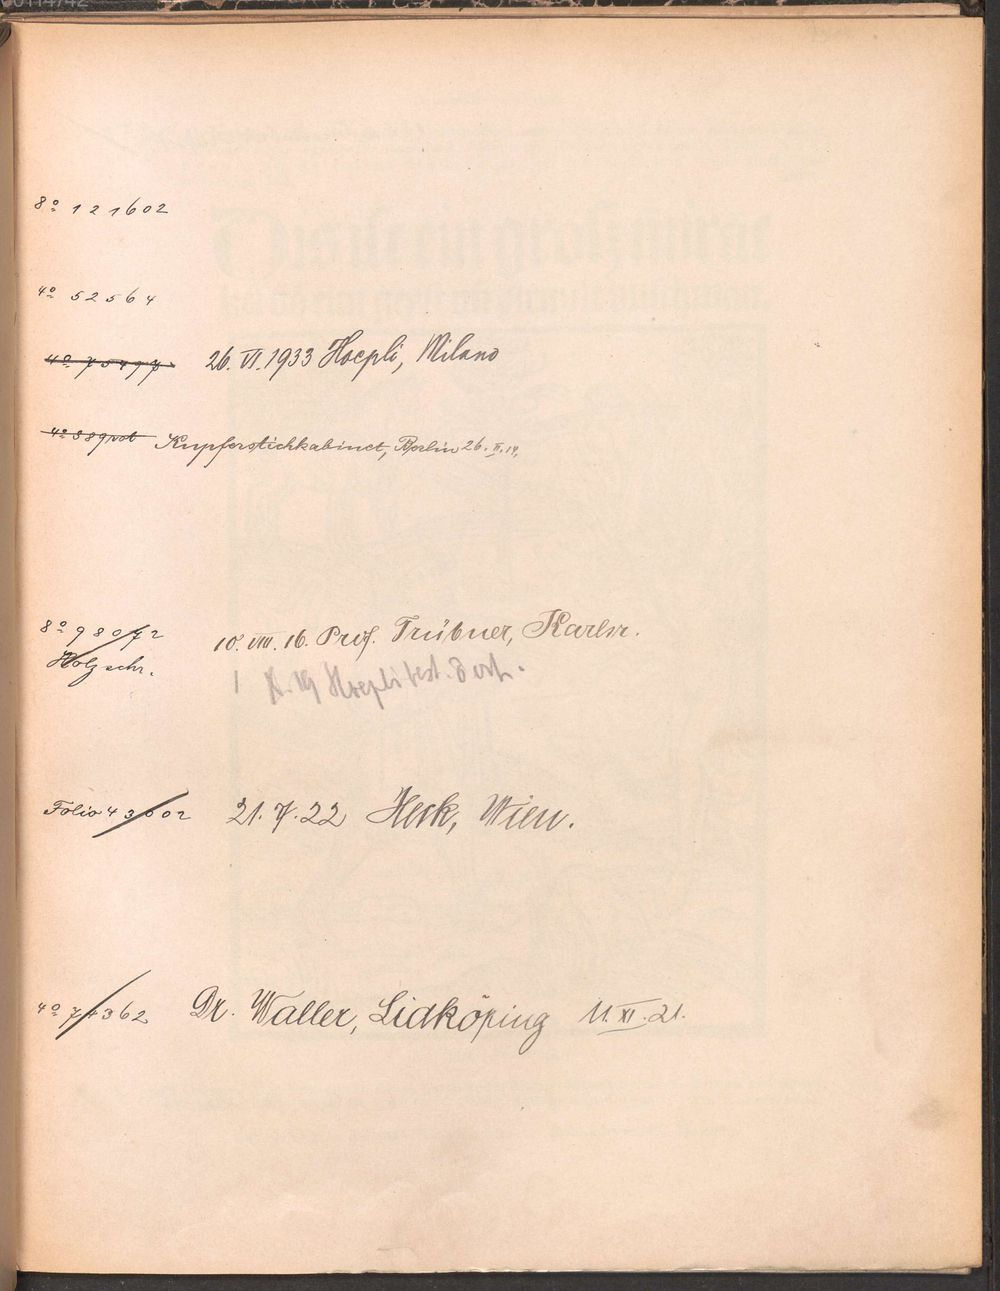 8º 121602
4º 52564
4º 75497 26. VI. 1933 Hoepli, Milano
Kupferstichkabinet, Berlin 26. II. 14.
8º 98072 10. VIII. 16. Prof. Trübner, Karlsr.
Holzschr.
Folio 43602 21. 7. 22 Heck, Wien.
4º 74362 Dr. Waller, Lidköping 11. XI. 21.